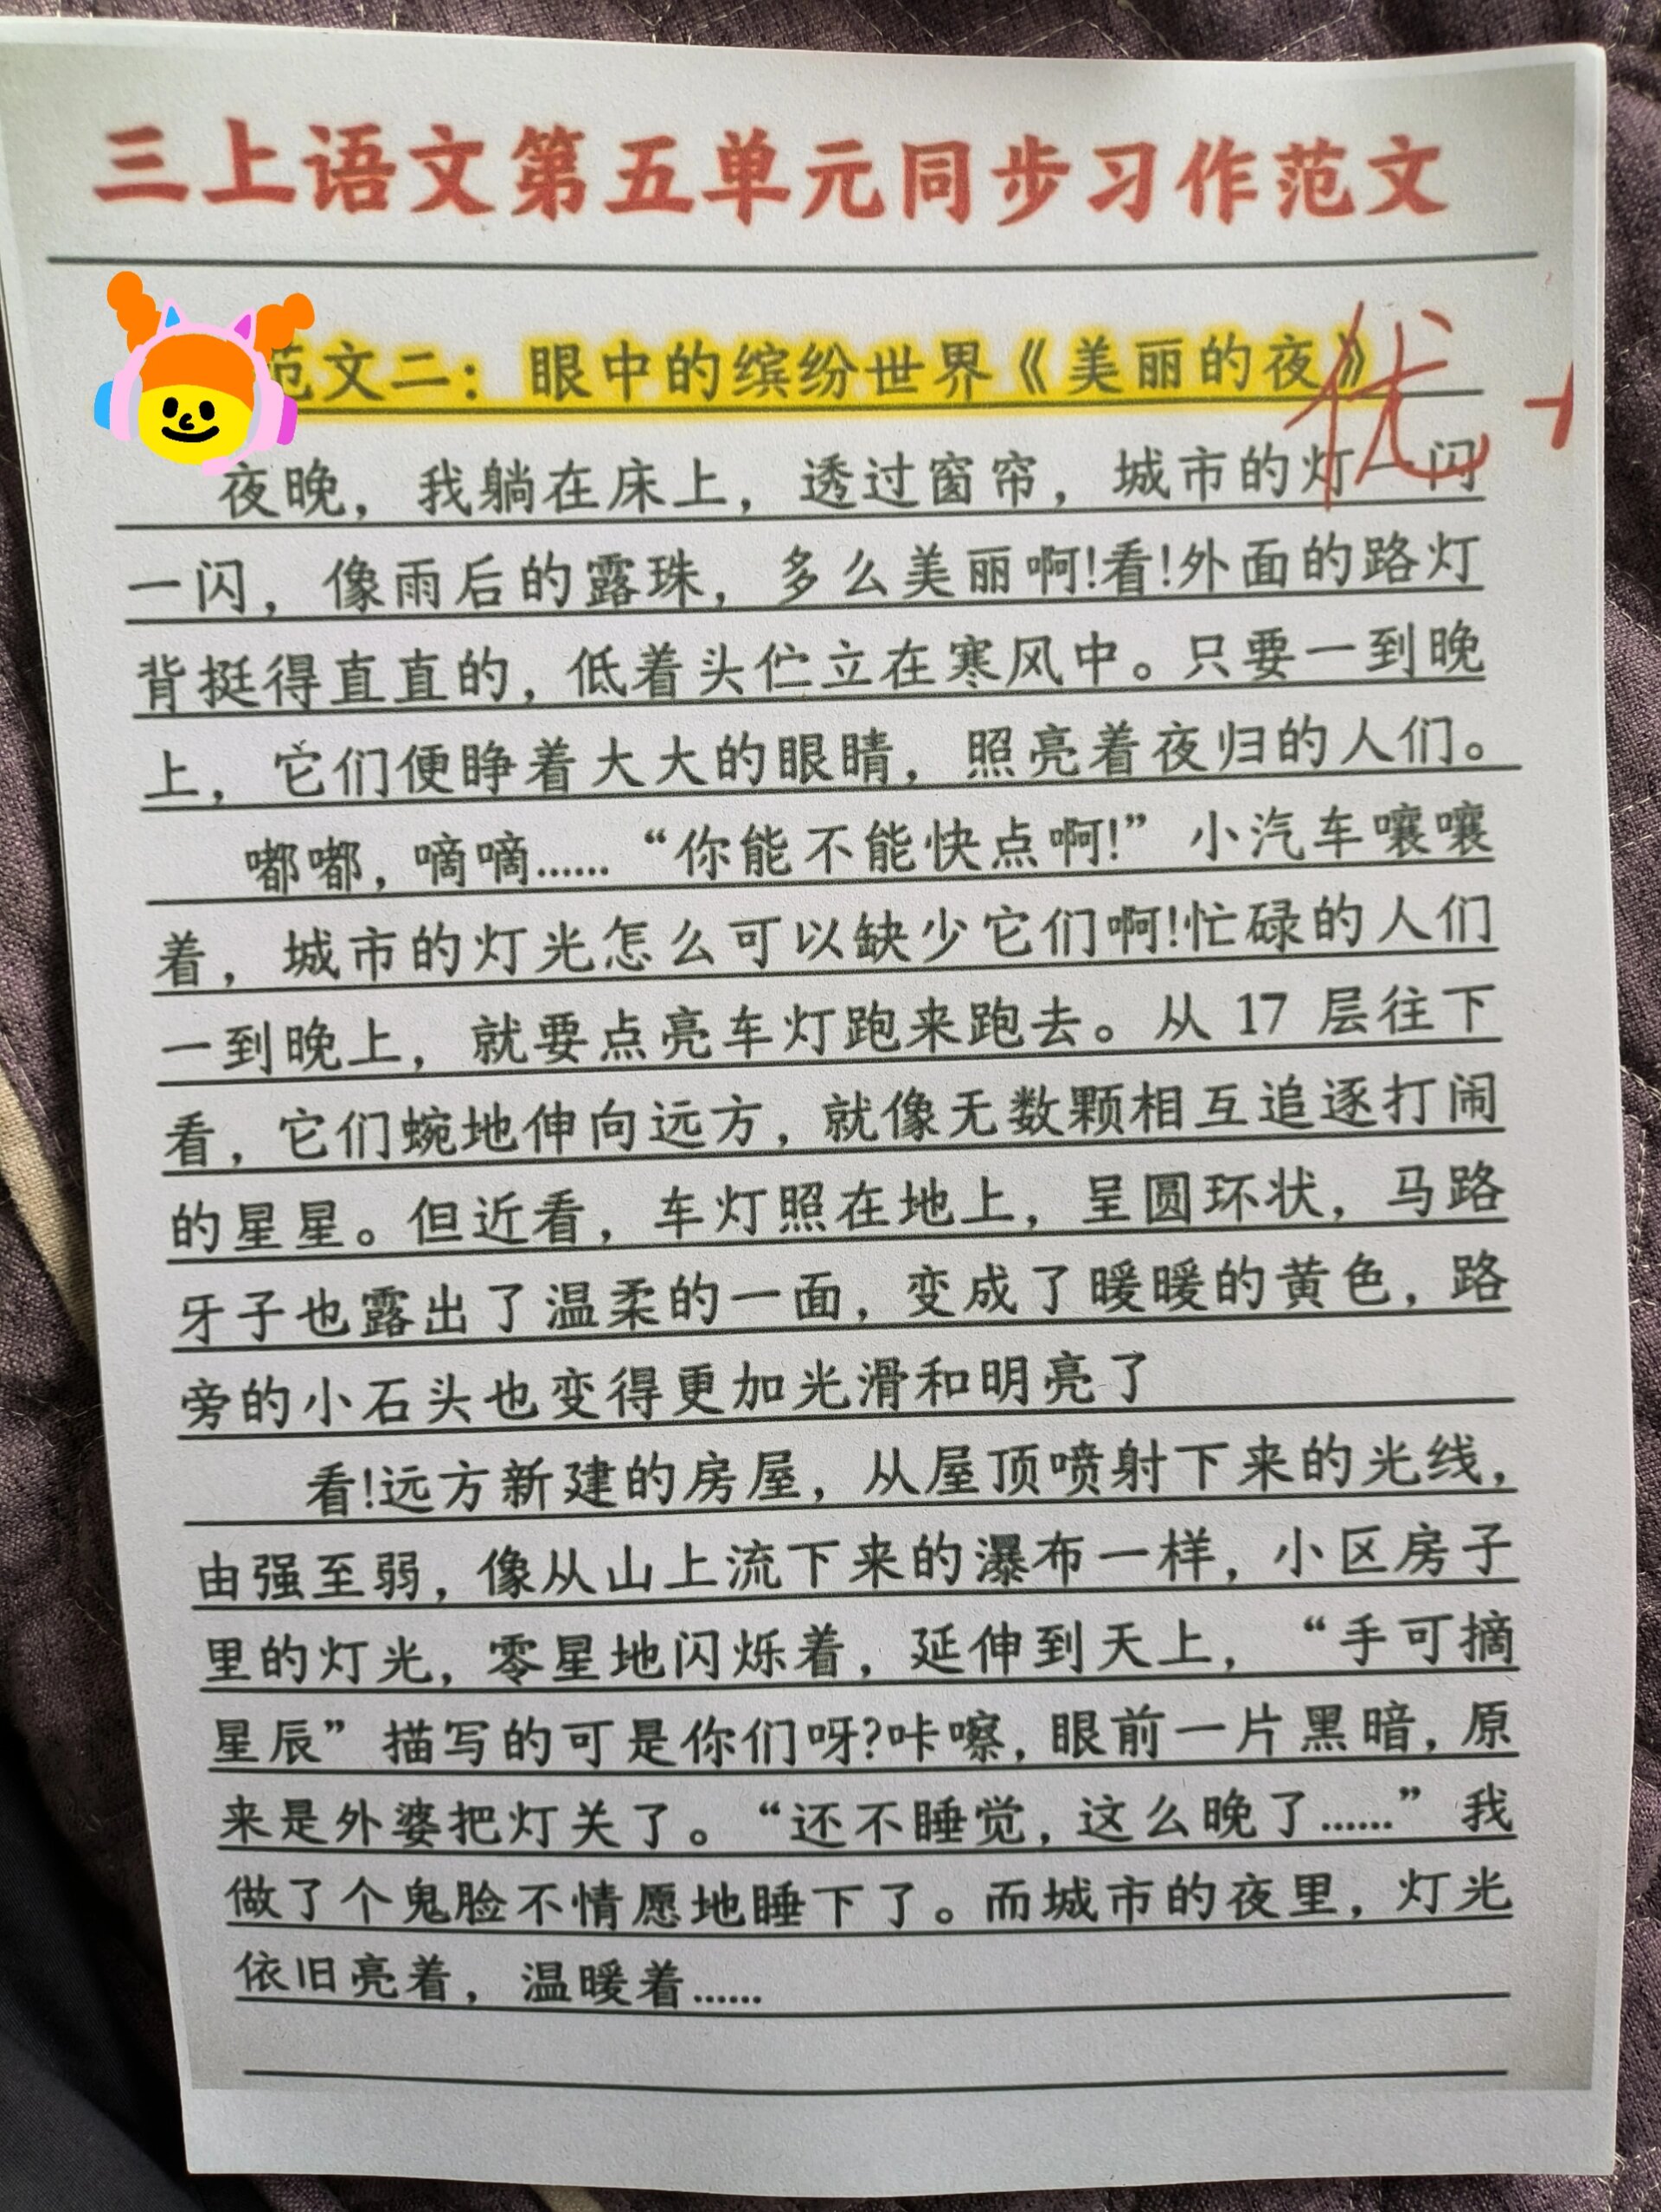 三上语文第五单元同步习作范文
范文二：眼中的缤纷世界《美丽的夜》
优+
夜晚，我躺在床上，透过窗帘，城市的灯一闪
一闪，像雨后的露珠，多么美丽啊!看!外面的路灯
背挺得直直的，低着头伫立在寒风中。只要一到晚
上，它们便睁着大大的眼睛，照亮着夜归的人们。
嘟嘟，嘀嘀……“你能不能快点啊!”小汽车嚷嚷
着，城市的灯光怎么可以缺少它们啊!忙碌的人们
一到晚上，就要点亮车灯跑来跑去。从 17 层往下
看，它们蜿地伸向远方，就像无数颗相互追逐打闹
的星星。但近看，车灯照在地上，呈圆环状，马路
牙子也露出了温柔的一面，变成了暖暖的黄色，路
旁的小石头也变得更加光滑和明亮了
看!远方新建的房屋，从屋顶喷射下来的光线，
由强至弱，像从山上流下来的瀑布一样，小区房子
里的灯光，零星地闪烁着，延伸到天上，“手可摘
星辰”描写的可是你们呀?咔嚓，眼前一片黑暗，原
来是外婆把灯关了。“还不睡觉，这么晚了……”我
做了个鬼脸不情愿地睡下了。而城市的夜里，灯光
依旧亮着，温暖着……